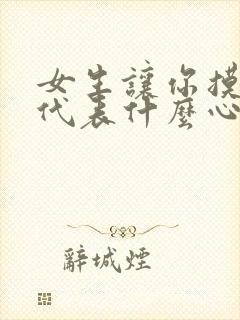 女生讓你摸
代表什麼心
辭城煙